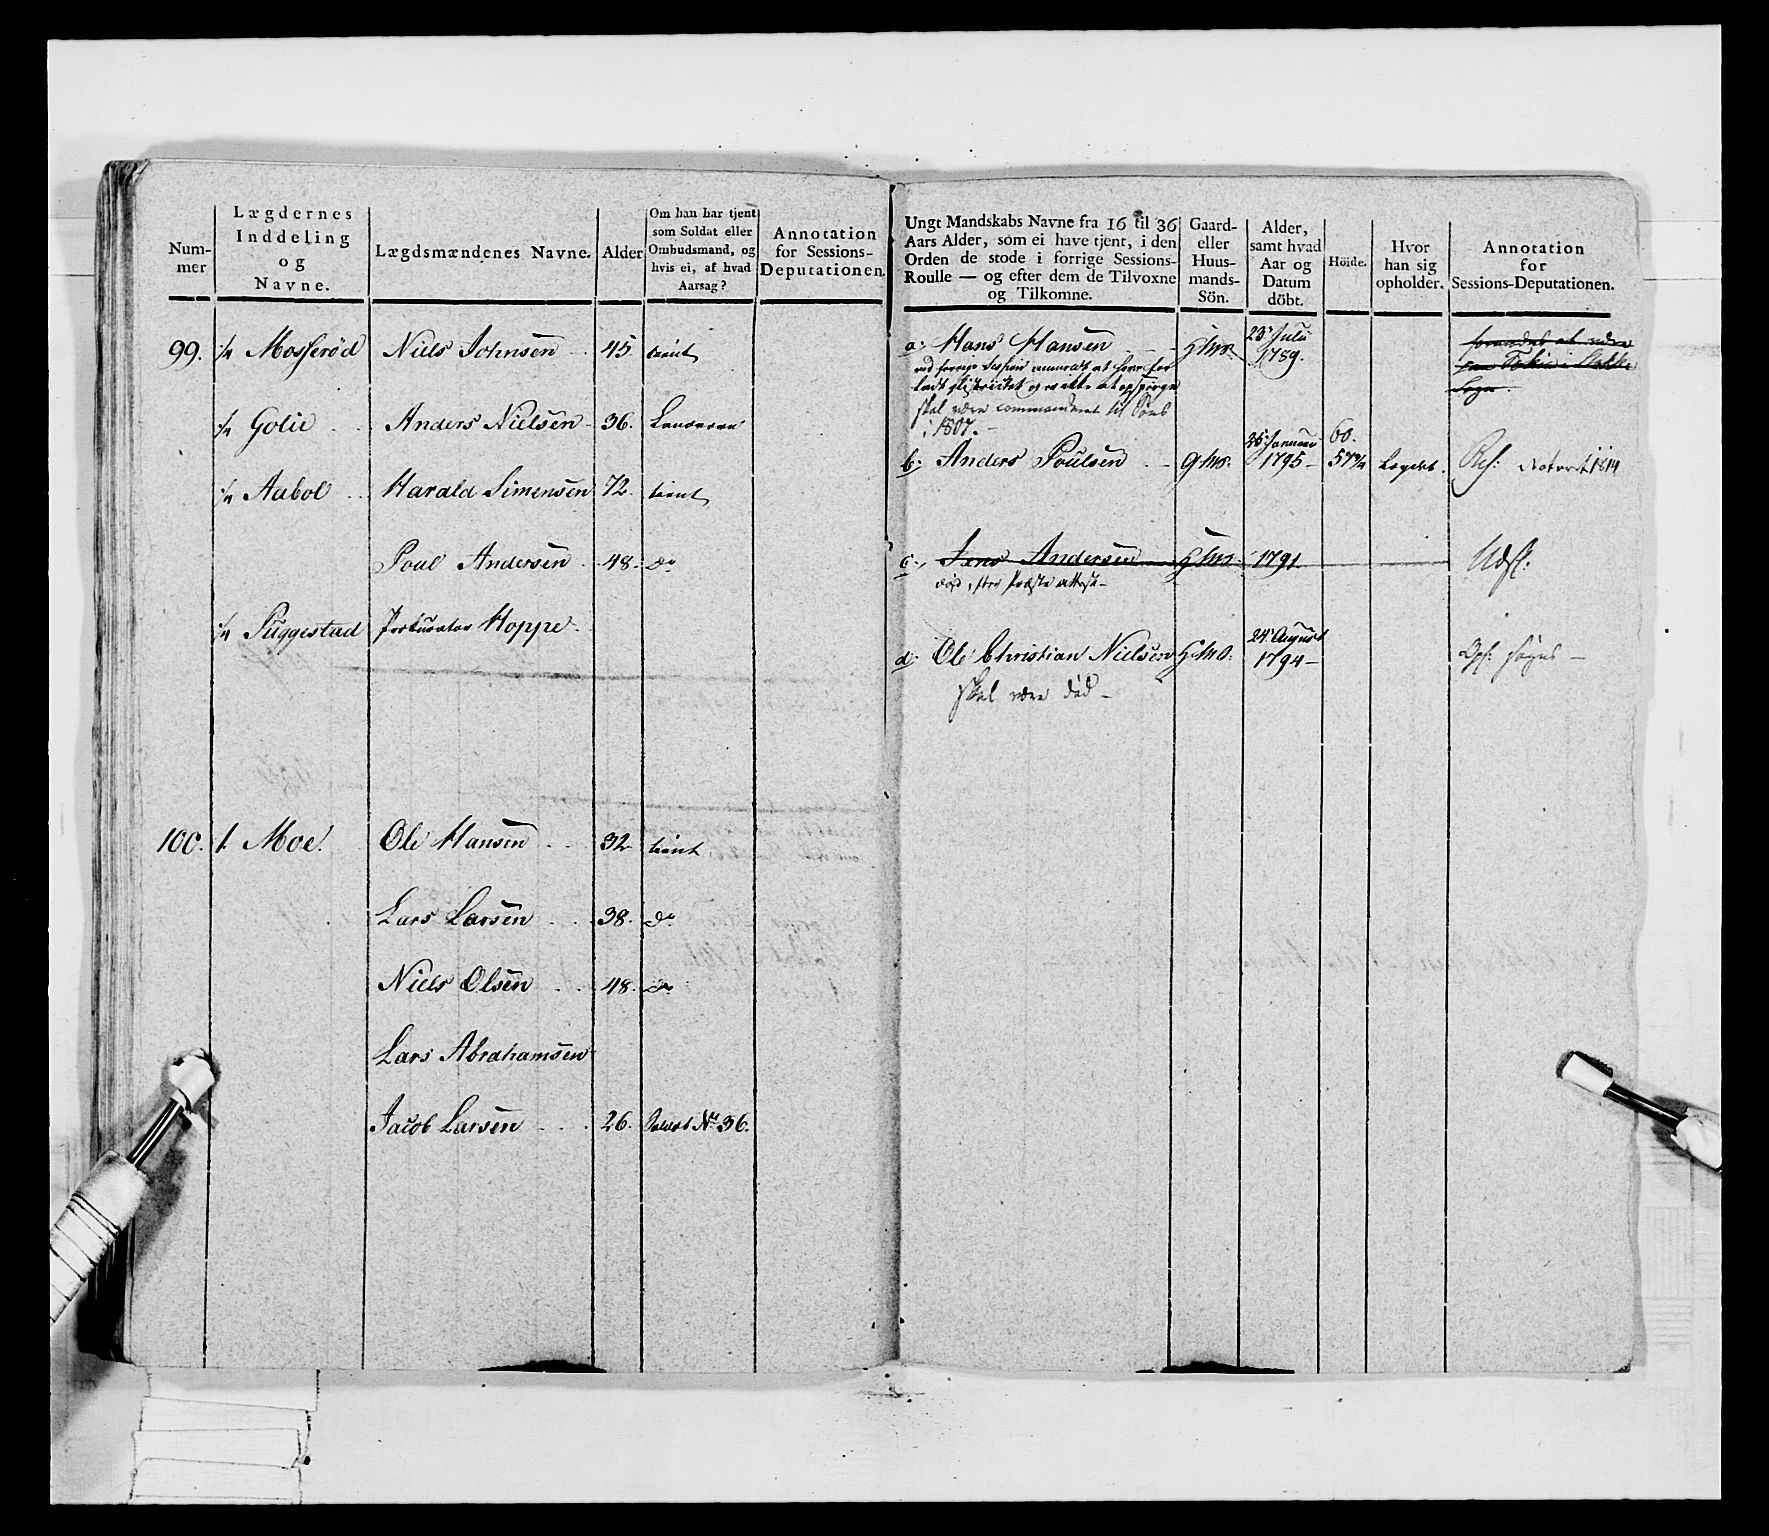 Num-
mer
Lægdernes
Inddeling
og
Navne.
Lægdsmændenes Navne.
Alder
Om han har tjent
som Soldat eller
Ombudsmand, og
hvis ei, af hvad
Aarsag?
Annotation
for Sessions-
Deputationen.
99. Mosserød Niels Johnsen 45. tient
Golie Anders Nielsen 36.
Aabol Harald Simensen 72. tient
Poul Andersen 48. do
Puggestad Prokurator Hoppe.
100. 1. Moe. Ole Hansen 32 tient
Lars Larsen 38. do
Niels Olsen 48. do
Lars Abrahamsen
Jacob Larsen 26. Soldat No 36.
Ungt Mandskabs Navne fra 16 til 36
Aars Alder, som ei have tjent, i den
Orden de stode i forrige Sessions-
Roulle — og efter dem de Tilvoxne
og Tilkomne.
Gaard-
eller
Huus-
mands-
Sön.
Alder,
samt hvad
Aar og
Datum
döbt.
Höide.
Hvor
han sig
opholder.
Annotation
for
Sessions-Deputationen.
a. Hans Hansen 23 Julii 1789.
ved forrige Session anmeldt at have for
ladt Distriktet og ei at opspørge
skal være commanderet til Søes
i 1807.
b. Anders Poulsen 1795 60. 57¾ Lægdet. Noteret 1814
c. Jens Andersen 1791 Udsl.
død, efter Præste attest
d. Ole Christian Nielsen 24 August 1794 søges
skal være død